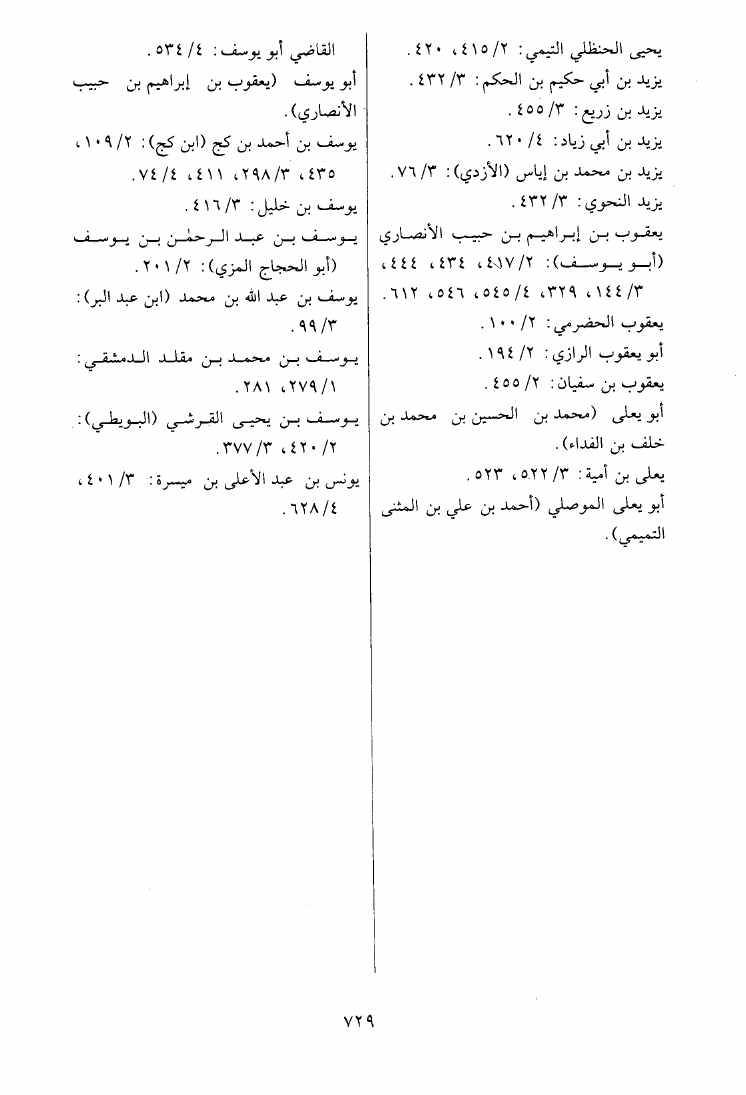 يحيى الحنظلي التيمي: ٢/ ٤١٥، ٤٢٠.
يزيد بن أبي حكيم بن الحكم: ٣/ ٤٣٢.
يزيد بن زريع: ٣/ ٤٥٥.
يزيد بن أبي زياد: ٤/ ٦٢٠.
يزيد بن محمد بن إياس (الأزدي): ٣/ ٧٦.
يزيد النحوي: ٣/ ٤٣٢.
يعقوب بن إبراهيم بن حبيب الأنصاري
(أبو يوسف): ٢/ ٤٠١٧، ٤٣٤، ٤٤٤،
٣/ ١٤٤، ٣٢٩، ٤/ ٥٤٥، ٥٤٦، ٦١٢.
يعقوب الحضرمي: ٢/ ١٠٠.
أبو يعقوب الرازي: ٢/ ١٩٤.
يعقوب بن سفيان: ٢/ ٤٥٥.
أبو يعلى (محمد بن الحسين بن محمد بن
خلف بن الفداء).
يعلى بن أمية: ٣/ ٥٢٢، ٥٢٣.
أبو يعلى الموصلي (أحمد بن علي بن المثنى
التميمي).
القاضي أبو يوسف: ٤/ ٥٣٤.
أبو يوسف (يعقوب بن إبراهيم بن حبيب
الأنصاري).
يوسف بن أحمد بن كج (ابن كج): ٢/ ١٠٩،
٤٣٥، ٣/ ٢٩٨، ٤١١، ٤/ ٧٤.
يوسف بن خليل: ٣/ ٤١٦.
يوسف بن عبد الرحمٰن بن يوسف
(أبو الحجاج المزي): ٢/ ٢٠١.
يوسف بن عبد الله بن محمد (ابن عبد البر):
٣/ ٩٩.
يوسف بن محمد بن مقلد الدمشقي:
١/ ٢٧٩، ٢٨١.
يوسف بن يحيى القرشي (البويطي):
٢/ ٤٢٠، ٣/ ٣٧٧.
يونس بن عبد الأعلى بن ميسرة: ٣/ ٤٠١،
٤/ ٦٢٨.
٧٢٩